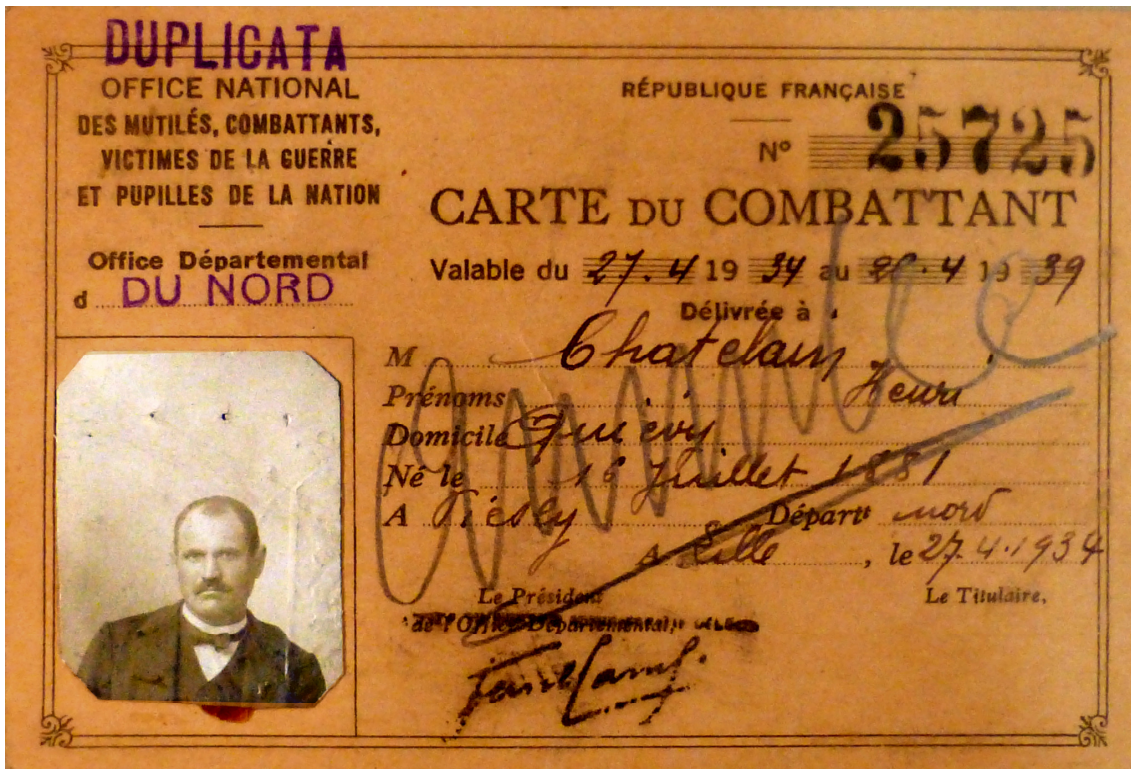 DUPLICATA
OFFICE NATIONAL
DES MUTILÉS, COMBATTANTS,
VICTIMES DE LA GUERRE
ET PUPILLES DE LA NATION
Office Départemental
d DU NORD
RÉPUBLIQUE FRANÇAISE
N° 25725
CARTE DU COMBATTANT
Valable du 27.4 19 34 au 26.4 19 39
Délivrée à
M Chatelain
Prénoms Henri
Domicile Quiévy
Né le 16 Juillet 1881
A Viesly Départt nord
A Lille, le 27.4.1934
Le Président
de l'Office Départemental,
Le Titulaire,
annulée